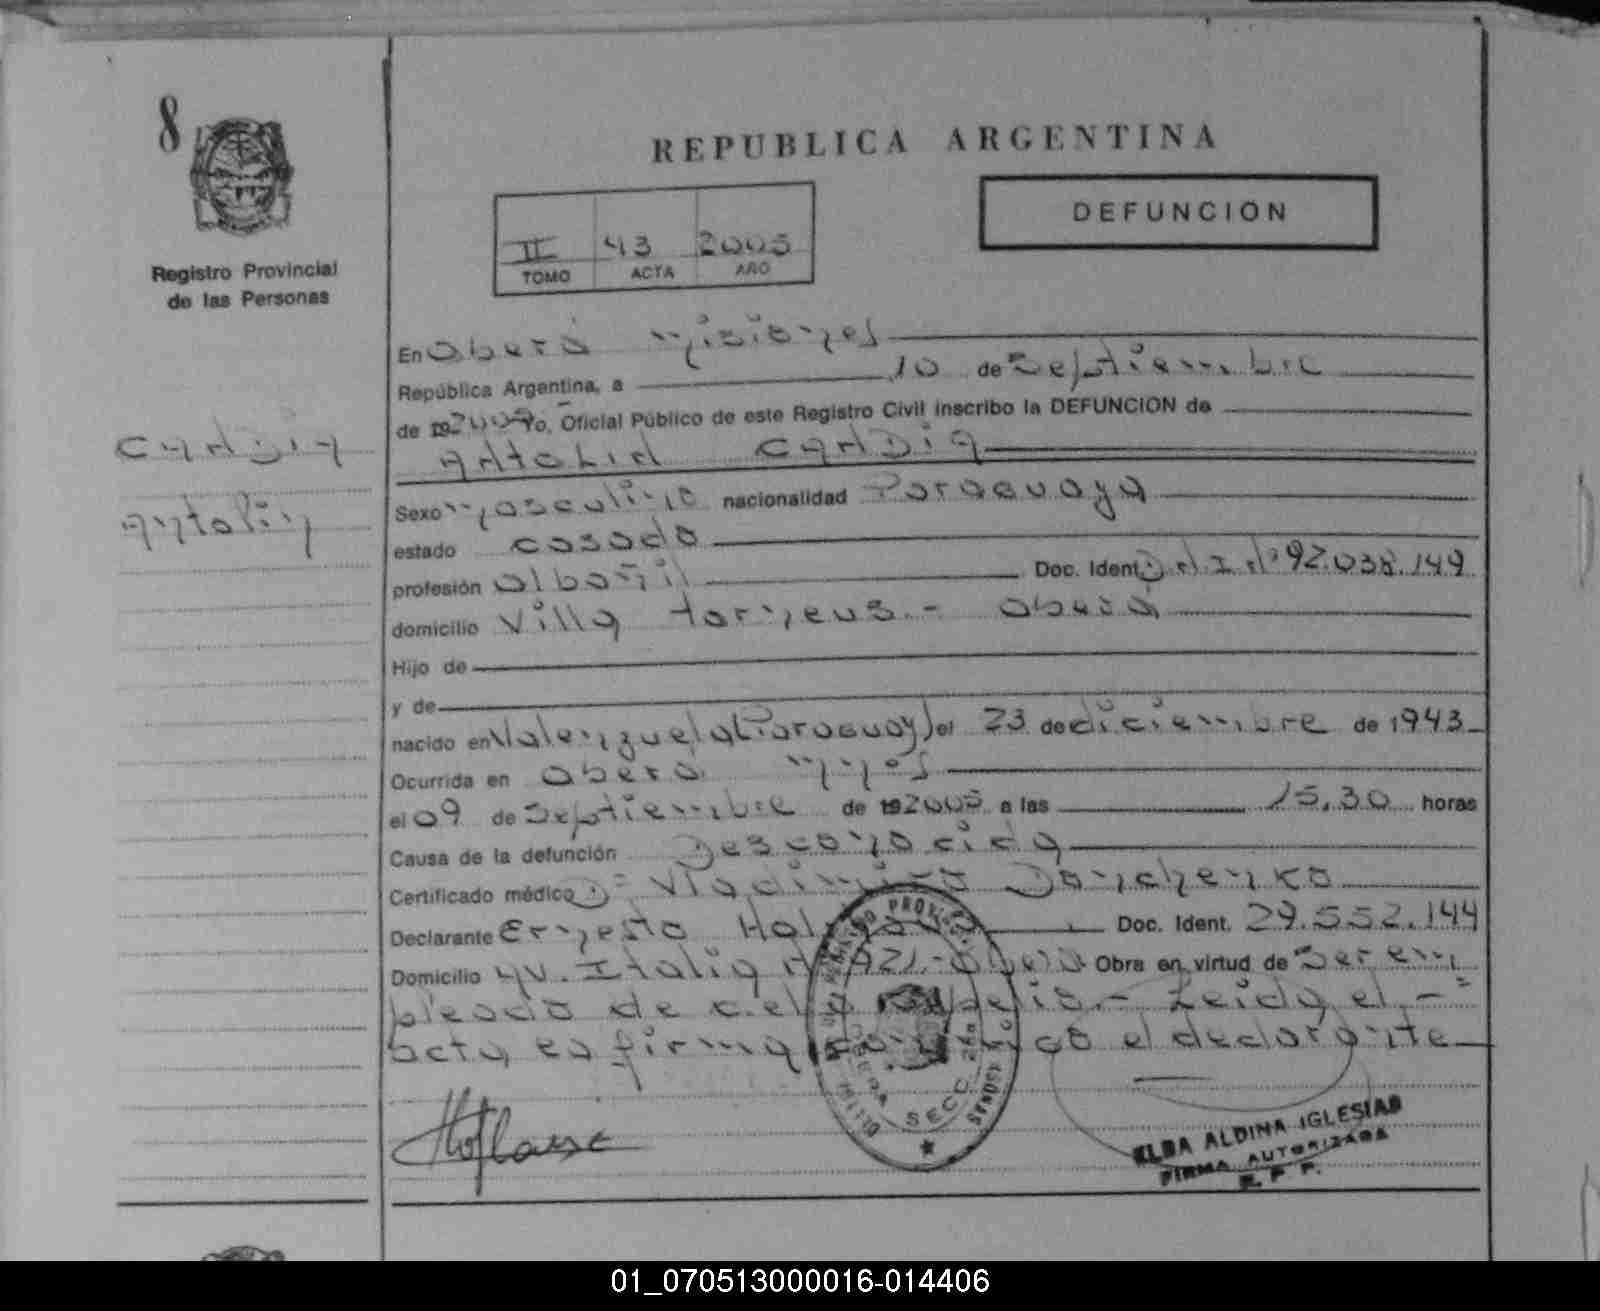 8
REPUBLICA ARGENTINA
DEFUNCION
II 43 2005
TOMO ACTA AÑO
Registro Provincial
de las Personas
CANDIA
Antolin
En Oberá Misiones
República Argentina, a 10 de Septiembre
de 19 200 Yo, Oficial Público de este Registro Civil inscribo la DEFUNCION de
ANTOLIN CANDIA
Sexo masculino nacionalidad Paraguaya
estado casado
profesión albañil Doc. Ident. D.N.I.Nº 92.038.149
domicilio Villa - Oberá
Hijo de
y de
nacido en Valenzuela (Paraguay) el 23 de diciembre de 1943
Ocurrida en Oberá Mnes
el 09 de Septiembre de 19 2005 a las 15,30 horas
Causa de la defunción Desconocida
Certificado médico Dr Vladimiro Donchenko
Declarante Ernesto Doc. Ident. 29.552.144
Domicilio Av. Italia Nº 921 - Oberá Obra en virtud de Ser em
pleado de - Leida el
acta, la firma conmigo el declarante
SECC.
ELBA ALDINA IGLESIAS
FIRMA AUTORIZADA
R. P. P.
01_070513000016-014406